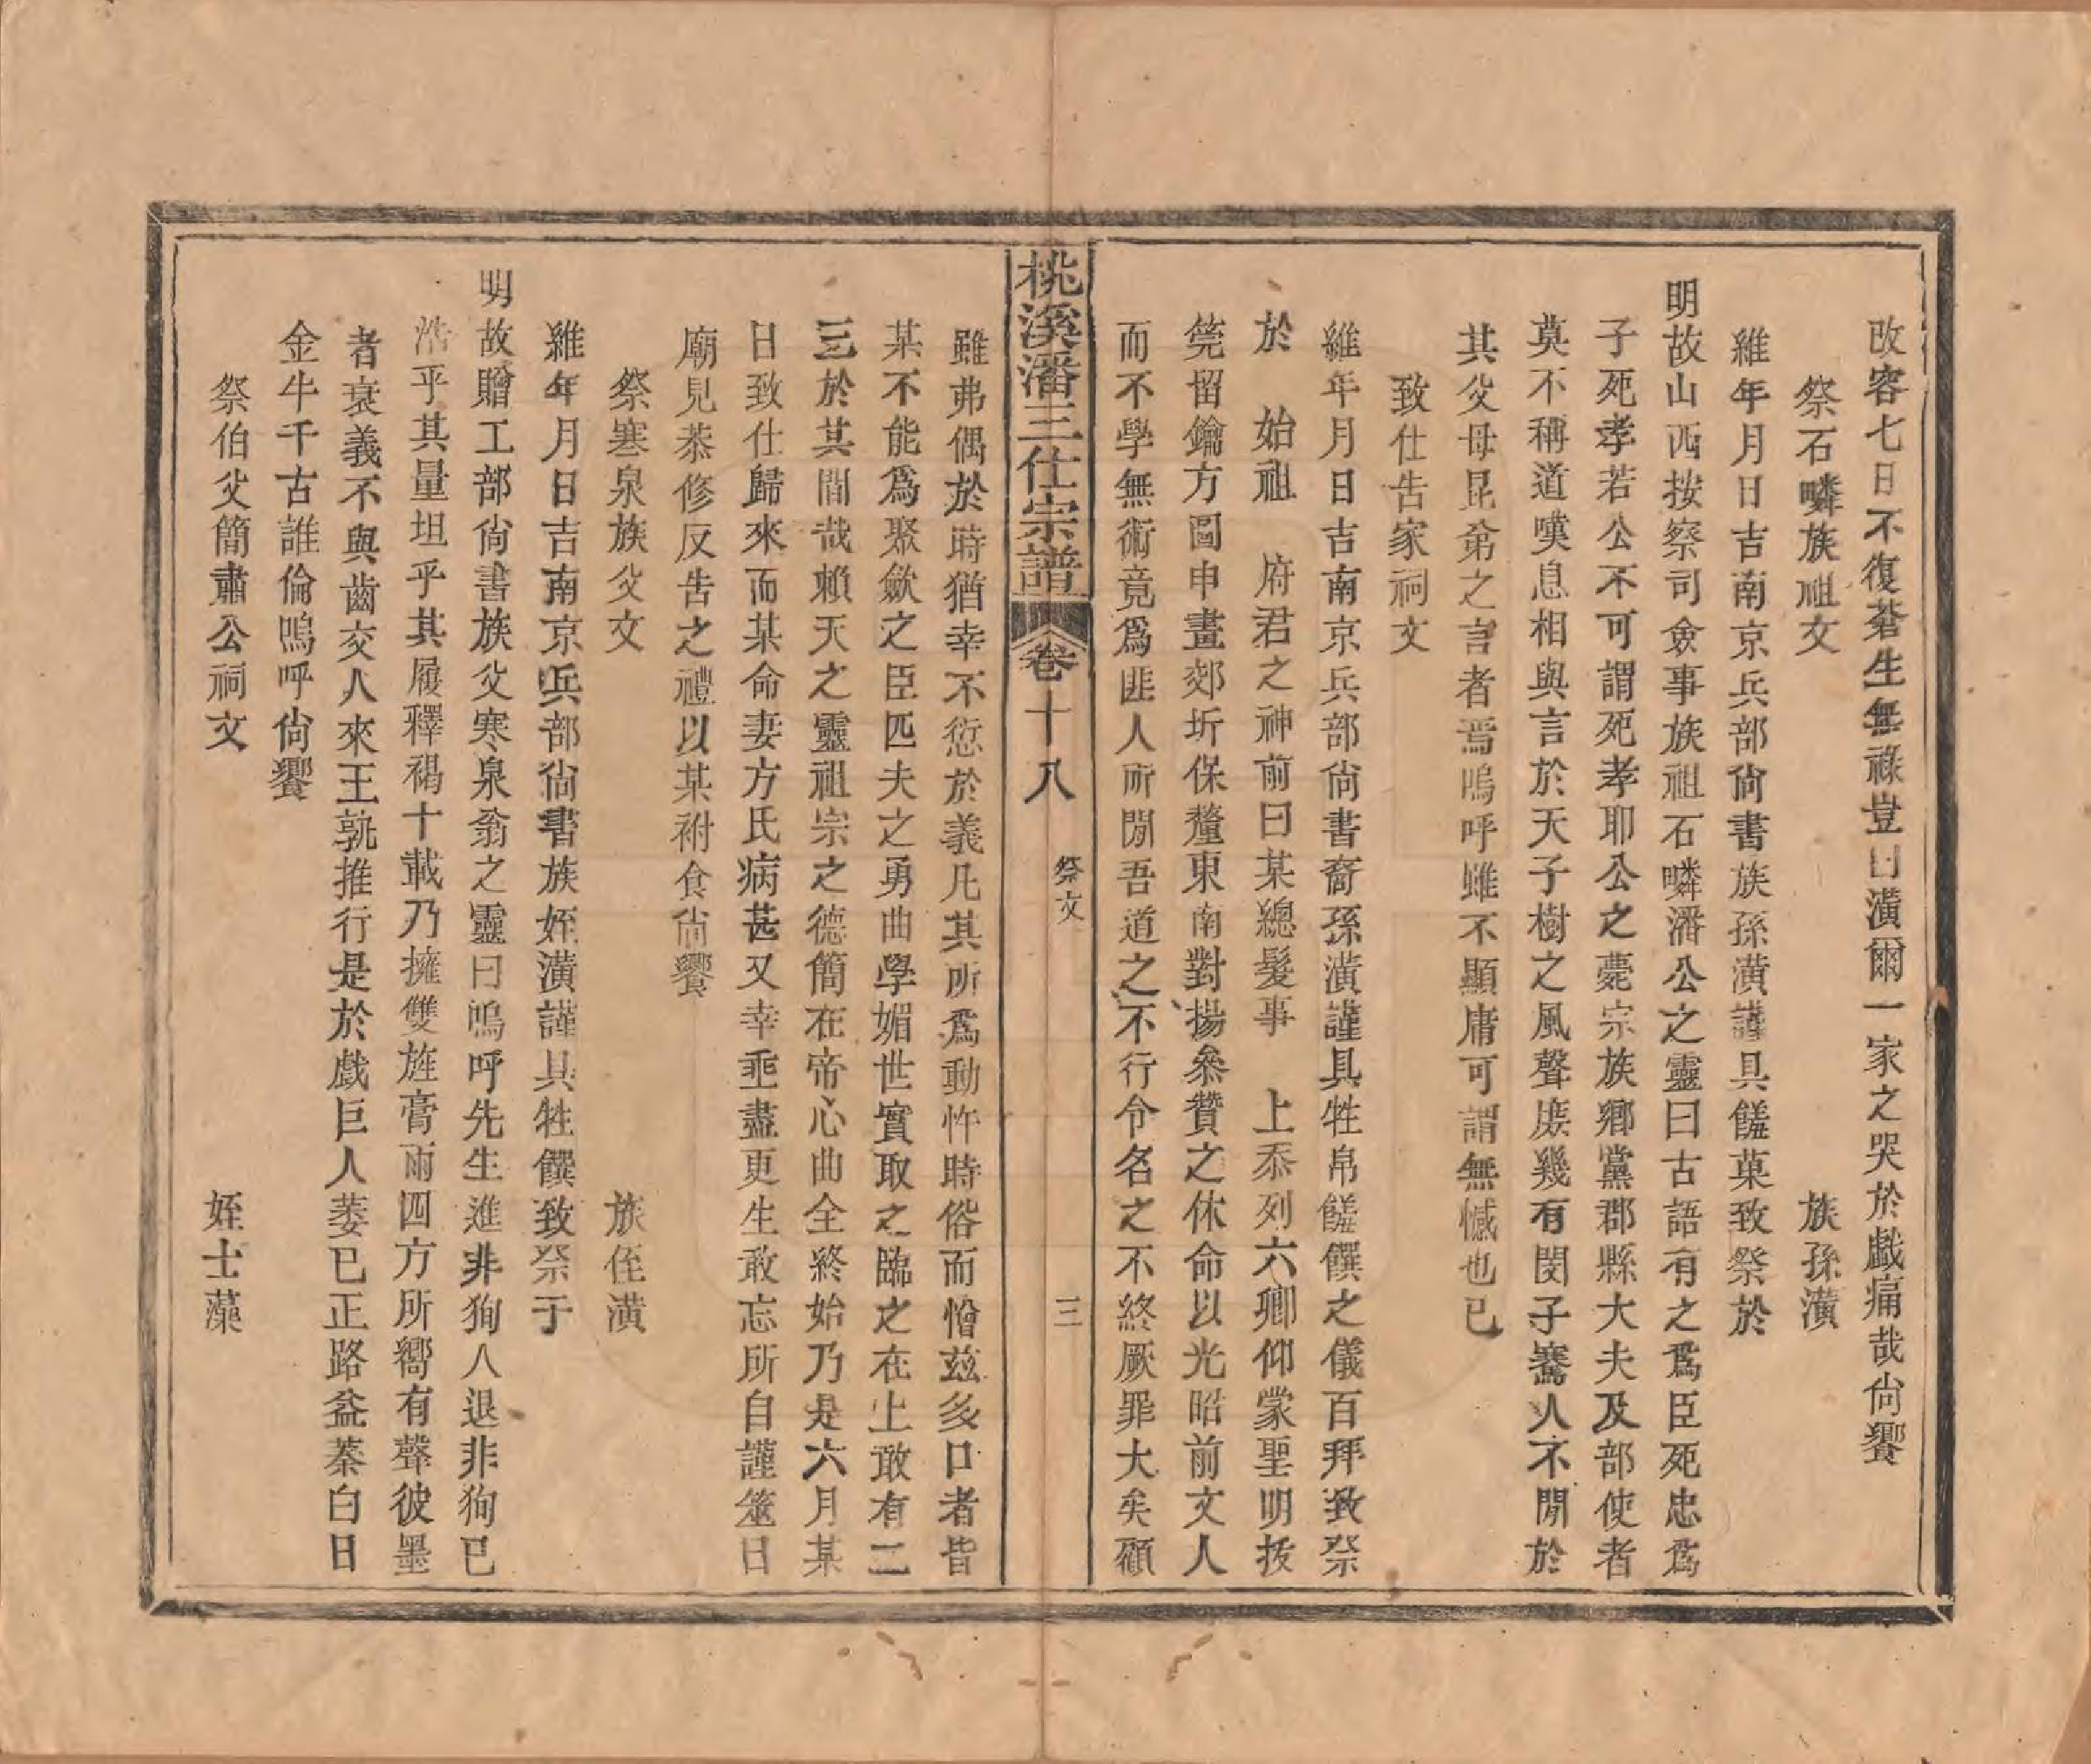 改容七日不復蒼生無祿豈曰潢爾一家之哭於戲痛哉尙饗
祭石麟族祖文　族孫潢
維年月日吉南京兵部尙書族孫潢謹具饈菓致祭於
明故山西按察司僉事族祖石麟潘公之靈曰古語有之爲臣死忠爲
子死孝若公不可謂死孝耶公之薨宗族鄉黨郡縣大夫及部使者
莫不稱道嘆息相與言於天子樹之風聲庶幾有閔子騫人不閒於
其父母昆弟之言者焉嗚呼雖不顯庸可謂無憾也已
致仕告家祠文
維年月日吉南京兵部尙書裔孫潢謹具牲帛饈饌之儀百拜致祭
於　始祖　府君之神前曰某總髮事　上忝列六卿仰蒙聖明拔
筦留鑰方圖申畫郊圻保釐東南對揚叅贊之休命以光昭前文人
而不學無術竟爲匪人所閒吾道之不行令名之不終厥罪大矣顧
桃溪潘三仕宗譜　卷十八　祭文　三
雖弗偶於時猶幸不愆於義凡其所爲動忤時俗而憎茲多口者皆
某不能爲聚歛之臣匹夫之勇曲學媚世實取之臨之在上敢有二
三於其間哉賴天之靈祖宗之德簡在帝心曲全終始乃是六月某
日致仕歸來而某命妻方氏病甚又幸垂盡更生敢忘所自謹筮日
廟見恭修反告之禮以某祔食尙饗
祭寒泉族父文　族侄潢
維年月日吉南京兵部尙書族姪潢謹具牲饌致祭于
明故贈工部尙書族父寒泉翁之靈曰嗚呼先生進非狥人退非狥已
浩乎其量坦乎其履釋褐十載乃擁雙旌膏雨四方所嚮有聲彼墨
者衰義不與齒交人來王孰推行是於戲巨人萎已正路益蓁白日
金牛千古誰倫嗚呼尙饗
祭伯父簡肅公祠文　姪士藻